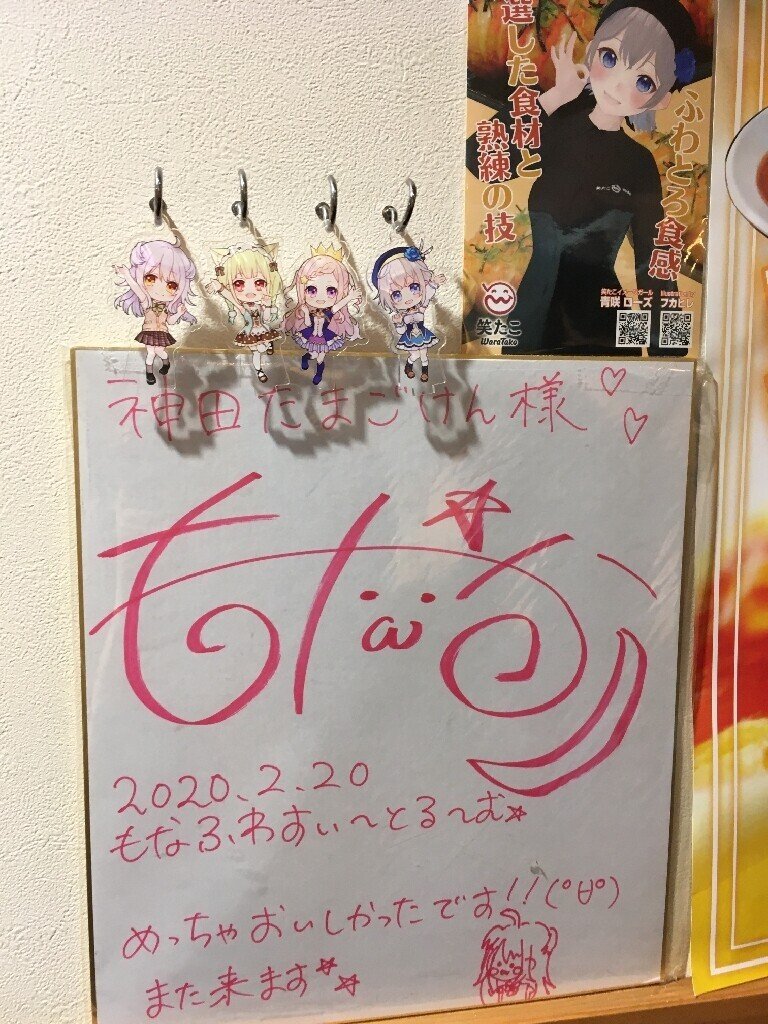 選した食材と
熟練の技
ふわとろ食感
笑たこ
WaraTako
笑たこイメージガール
青咲 ローズ
Illustrated by
フカヒレ
神田たまごけん様♡♡
もなか
2020.2.20
もなふわすい〜とる〜む☆
めっちゃおいしかったです!!(°∀°)
また来ます☆☆